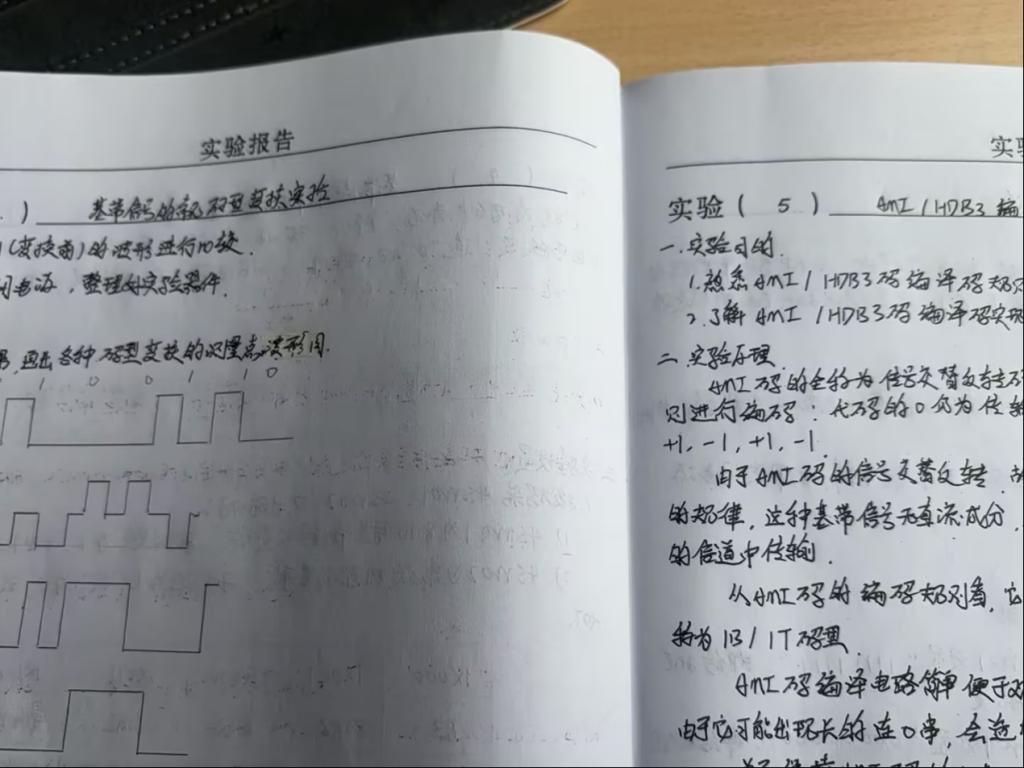 实验报告
) 基带信号的 码型变换实验
(变换前)的波形进行比较.
电源,整理好实验器件.
画出各种码型变换的测量点波形图.
1 1 0 0 1 1 0
实验
实验( 5 ) AMI/HDB3编
一.实验目的.
1.熟悉AMI/HDB3码编译码规则
2.了解AMI/HDB3码编译码实现
二.实验原理.
AMI码的全称为信号交替反转码
则进行编码:代码的0仍为传输
+1,-1,+1,-1.
由于AMI码的信号交替反转.
的规律,这种基带信号无直流成分,
的信道中传输.
从AMI码的编码规则看,它
转为1B/1T码型.
AMI码编译电路简单便于
由于它可能出现长的连0串,会造